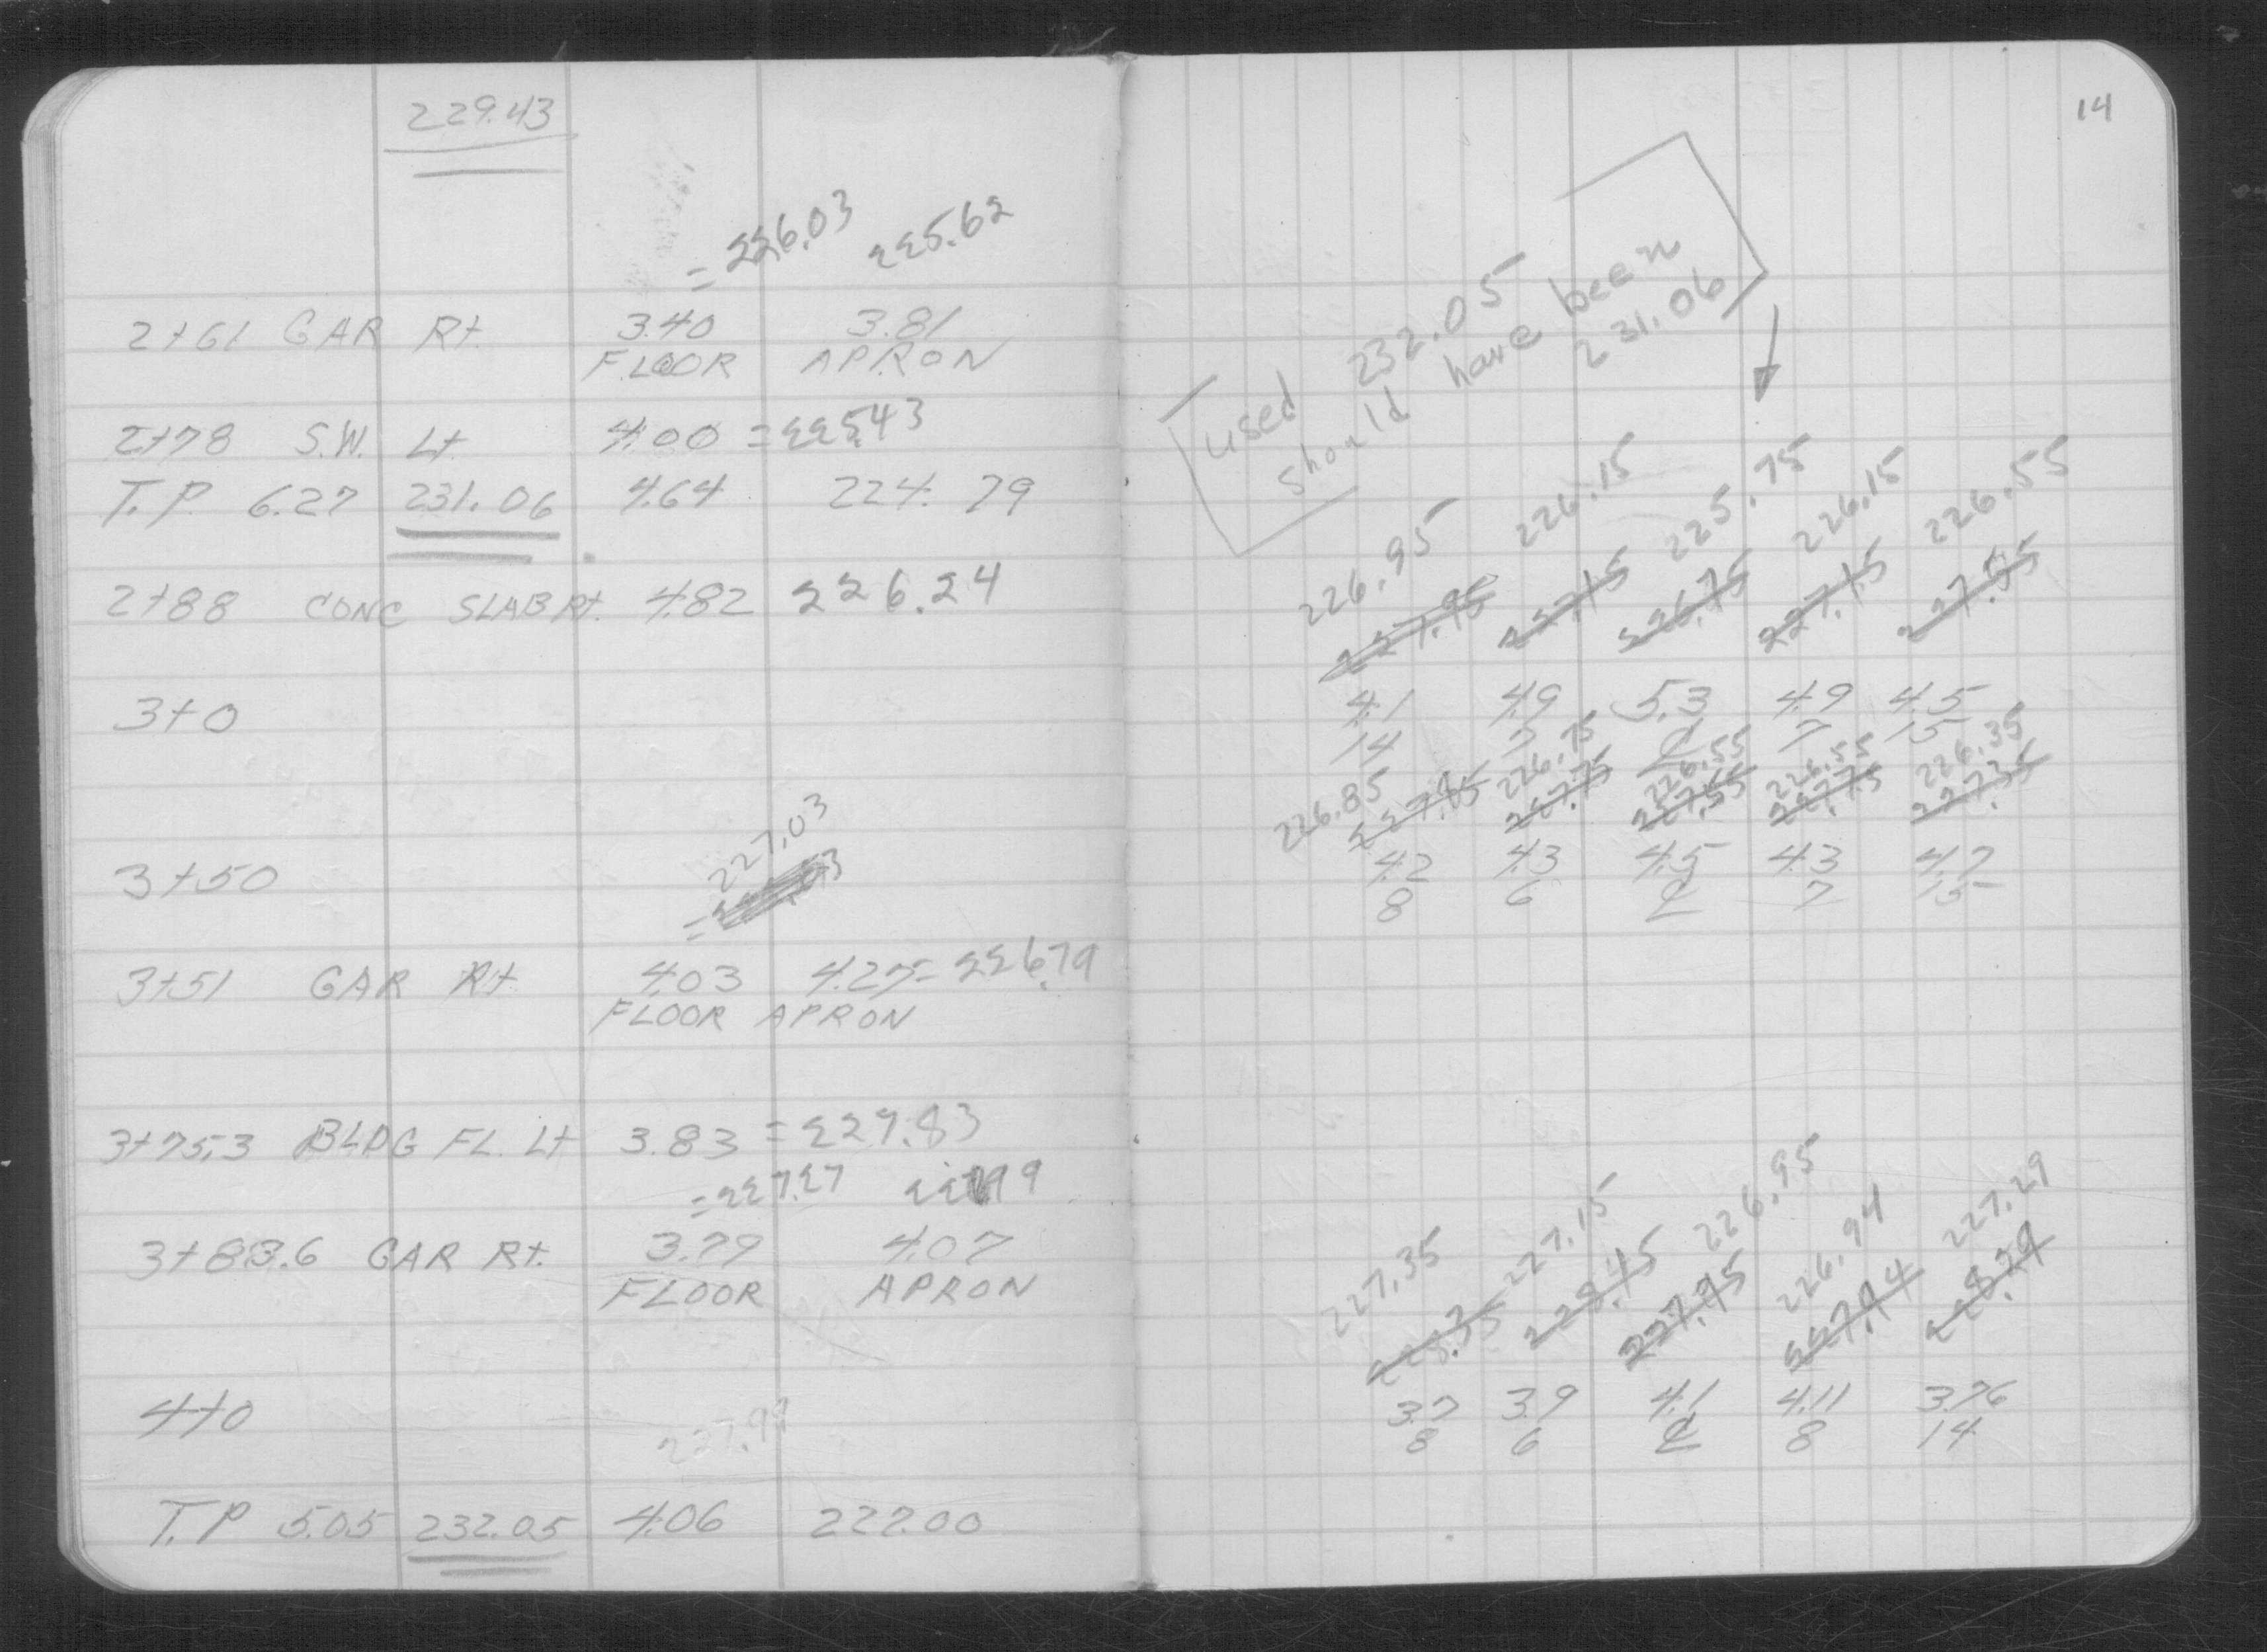 229.43
= 226.03 225.62
2+61 GAR Rt. 3.40 3.81
FLOOR APRON
2+78 S.W. Lt 4.00 = 225.43
T.P. 6.27 231.06 4.64 224.79
2+88 CONC SLAB Rt. 4.82 226.24
3+0
3+50
227.03
=
3+51 GAR Rt. 4.03 4.27= 226.79
FLOOR APRON
3+75.3 BLDG FL. Lt 3.83 = 227.83
= 227.27
3+83.6 GAR Rt. 3.79 4.07
FLOOR APRON
4+0
227.99
T.P 5.05 232.05 4.06 227.00
14
used 232.05
should have been
231.06
226.95 226.15 225.75 226.15 226.55
227.95 227.15 226.75 227.15 227.55
4.1 4.9 5.3 4.9 4.5
14 7 ℄ 7 15
226.85 226.75 226.55 226.55 226.35
227.85 227.75 227.55 227.75 227.35
4.2 4.3 4.5 4.3 4.7
8 6 ℄ 7 15
227.35 227.15 226.95 226.94 227.29
228.35 228.15 227.95 227.94 228.29
3.7 3.9 4.1 4.11 3.76
8 6 ℄ 8 14